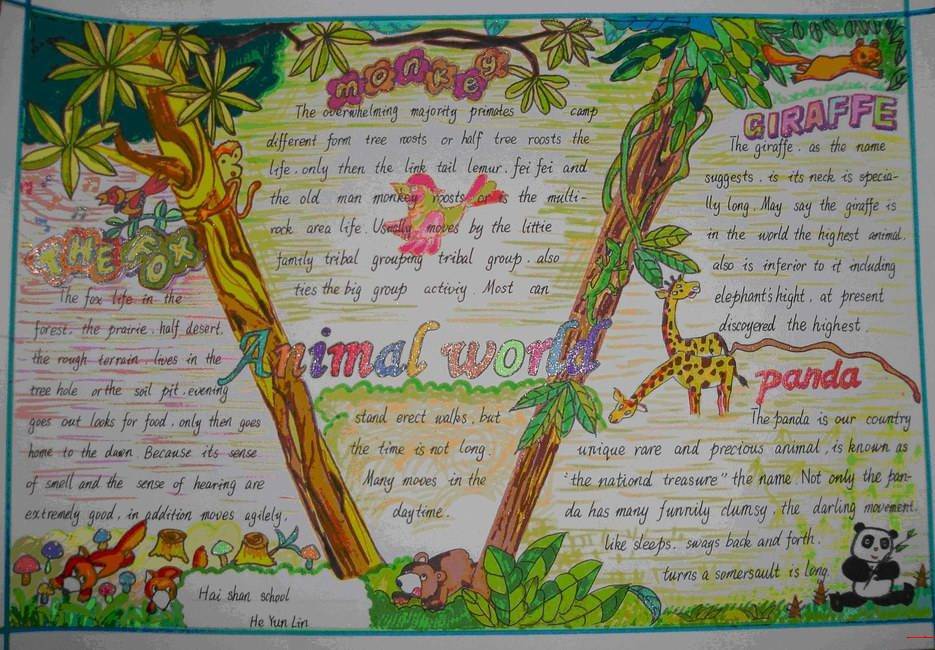 monkey
The overwhelming majority primates camp
different form tree roosts or half tree roosts the
life. only then the link tail lemur. fei fei and
the old man monkey roosts or is the multi-
rock area life. Usually moves by the little
family tribal grouping tribal group. also
ties the big group activiy. Most can
stand erect walks, but
the time is not long.
Many moves in the
daytime.
THE FOX
The fox life in the
forest. the prairie. half desert.
the rough terrain. lives in the
tree hole or the soil pit. evening
goes out looks for food. only then goes
home to the dawn Because its sense
of smell and the sense of hearing are
extremely good, in addition moves agilely.
Animal world
GIRAFFE
The giraffe. as the name
suggests. is its neck is specia-
lly long. May say the giraffe is
in the world the highest animal.
also is inferior to it including
elephant's hight. at present
discoyered the highest.
panda
The panda is our country
unique rare and precious animal, is known as
"the nationd treasure" the name. Not only the pan-
da has many funnily clumsy, the darling movement.
like sleeps. sways back and forth.
turns a somersault is long.
Hai shan school
He Yun Lin